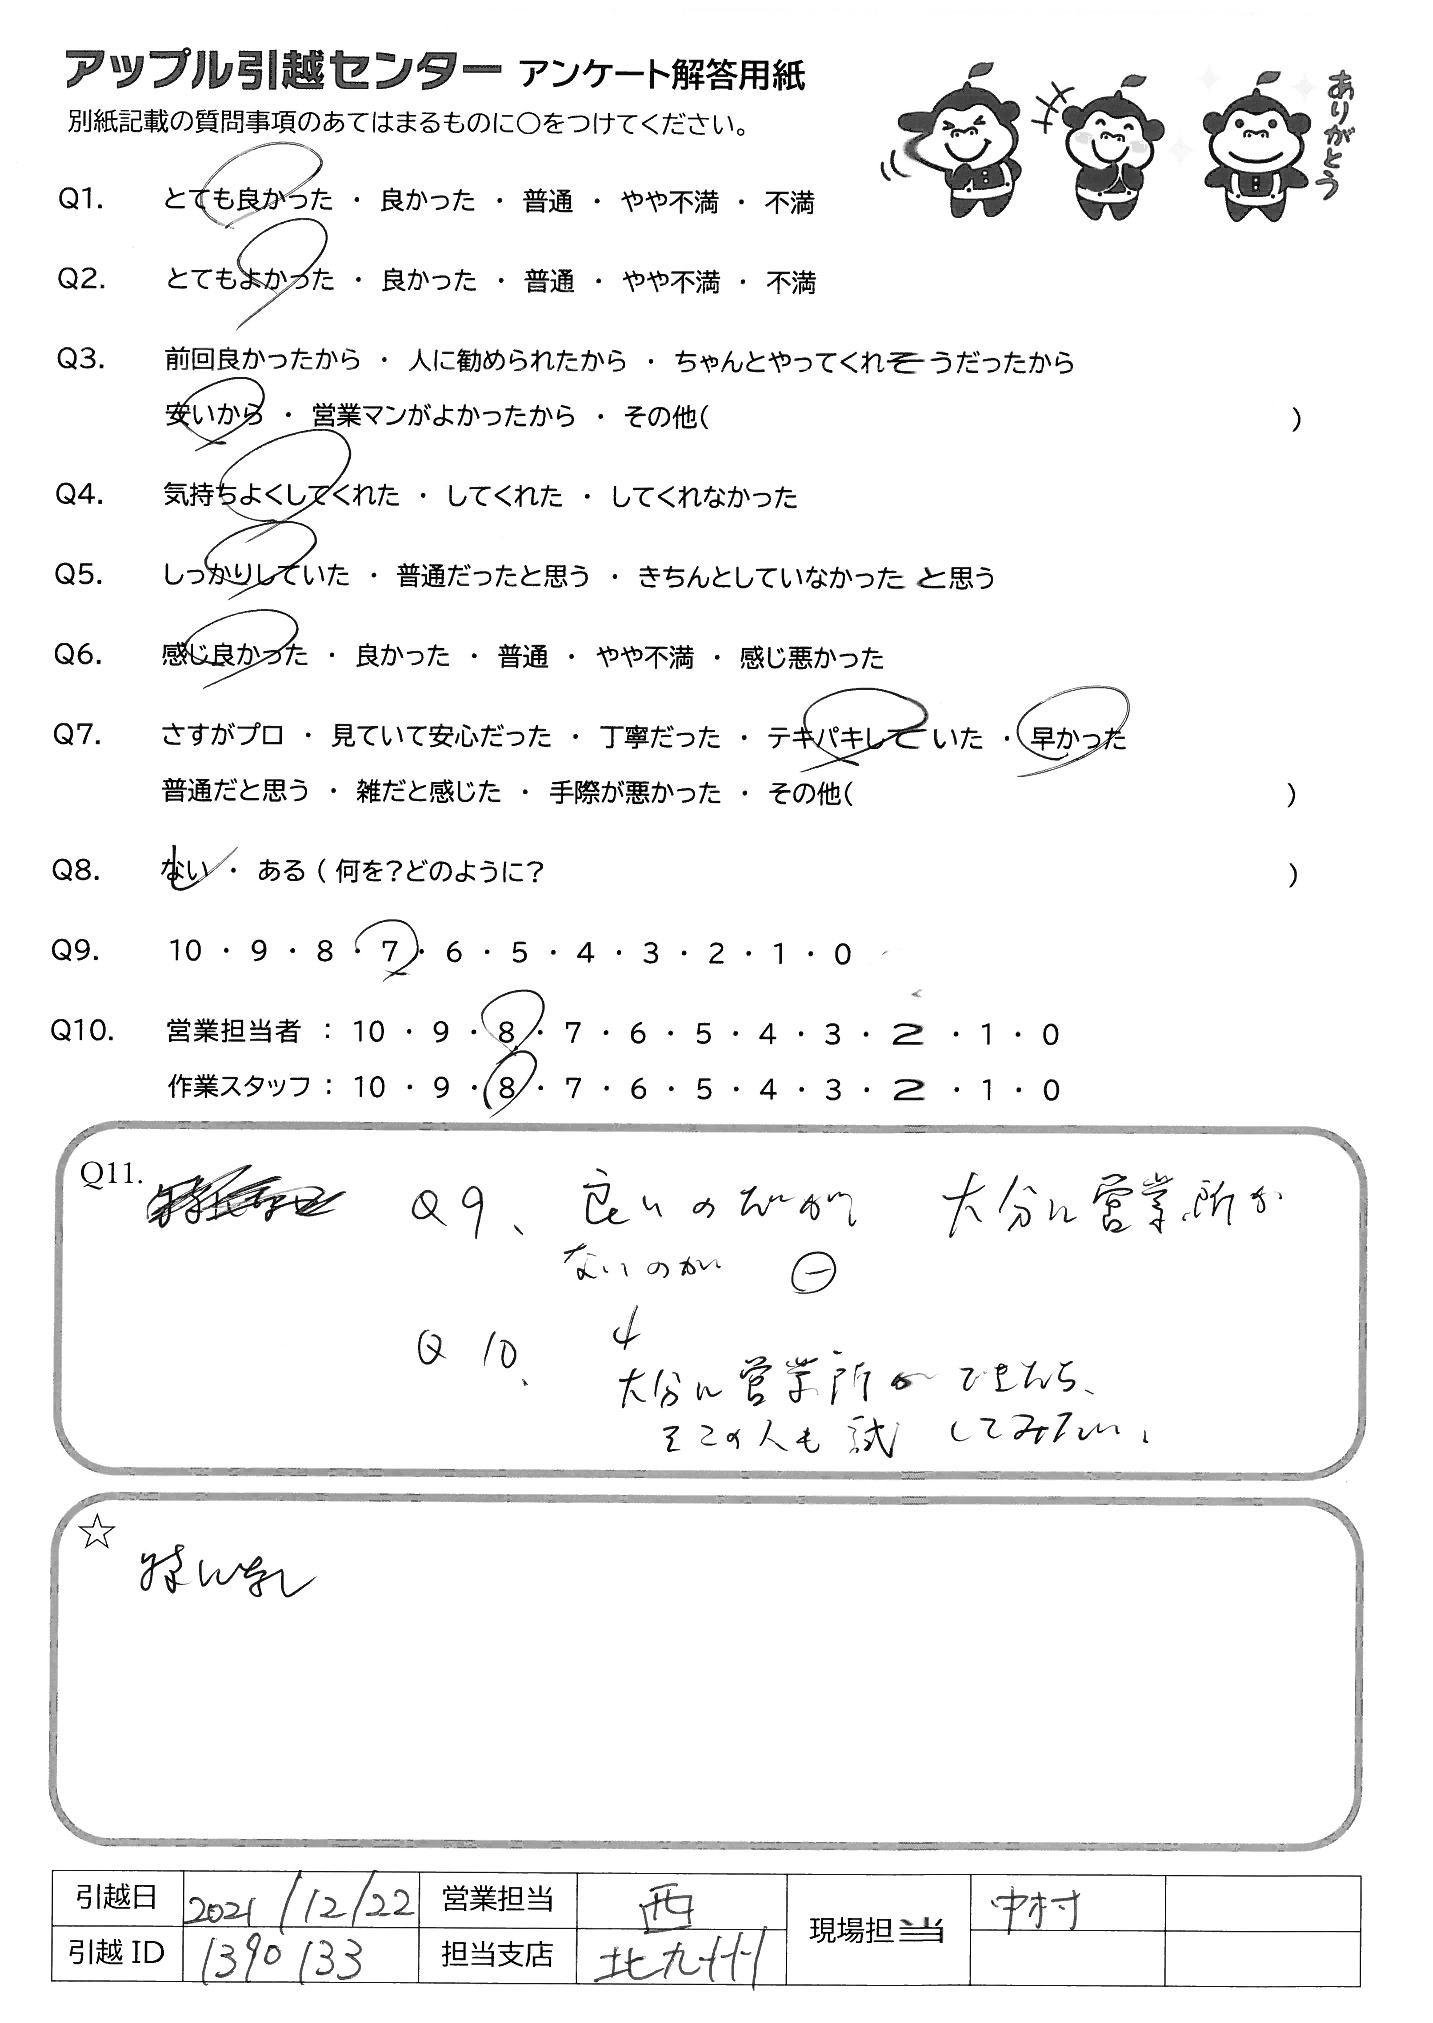 アップル引越センター アンケート解答用紙
ありがとう
別紙記載の質問事項のあてはまるものに○をつけてください。
Q1. とても良かった ・ 良かった ・ 普通 ・ やや不満 ・ 不満
Q2. とてもよかった ・ 良かった ・ 普通 ・ やや不満 ・ 不満
Q3. 前回良かったから ・ 人に勧められたから ・ ちゃんとやってくれそうだったから
安いから ・ 営業マンがよかったから ・ その他( )
Q4. 気持ちよくしてくれた ・ してくれた ・ してくれなかった
Q5. しっかりしていた ・ 普通だったと思う ・ きちんとしていなかったと思う
Q6. 感じ良かった ・ 良かった ・ 普通 ・ やや不満 ・ 感じ悪かった
Q7. さすがプロ ・ 見ていて安心だった ・ 丁寧だった ・ テキパキしていた ・ 早かった
普通だと思う ・ 雑だと感じた ・ 手際が悪かった ・ その他( )
Q8. ない ・ ある ( 何を?どのように? )
Q9. 10 ・ 9 ・ 8 ・ 7 ・ 6 ・ 5 ・ 4 ・ 3 ・ 2 ・ 1 ・ 0
Q10. 営業担当者 : 10 ・ 9 ・ 8 ・ 7 ・ 6 ・ 5 ・ 4 ・ 3 ・ 2 ・ 1 ・ 0
作業スタッフ : 10 ・ 9 ・ 8 ・ 7 ・ 6 ・ 5 ・ 4 ・ 3 ・ 2 ・ 1 ・ 0
Q11. Q9、良いのだが 大分に営業所が
ないのが ㊀
Q10、 ↓
大分に営業所ができたら、
そこの人も試してみたい、
☆
特になし
引越日 2021/12/22 営業担当 西 現場担当 中村
引越ID 1390133 担当支店 北九州